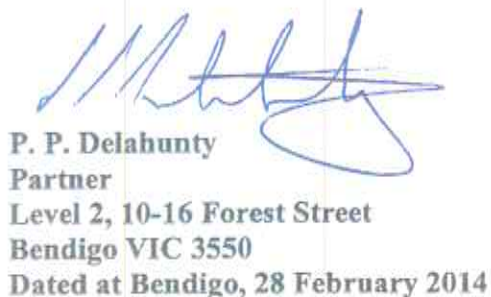 P. P. Delahunty
Partner
Level 2, 10-16 Forest Street
Bendigo VIC 3550
Dated at Bendigo, 28 February 2014